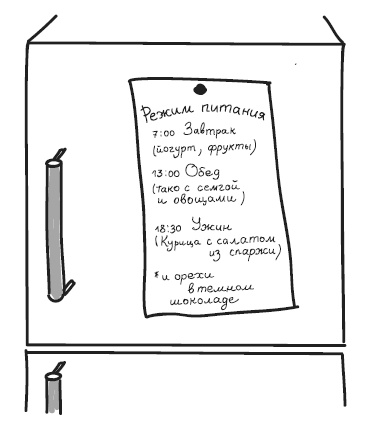 Режим питания
7:00 Завтрак
(йогурт, фрукты)
13:00 Обед
(тако с семгой
и овощами)
18:30 Ужин
(Курица с салатом
из спаржи)
*и орехи
в темном
шоколаде